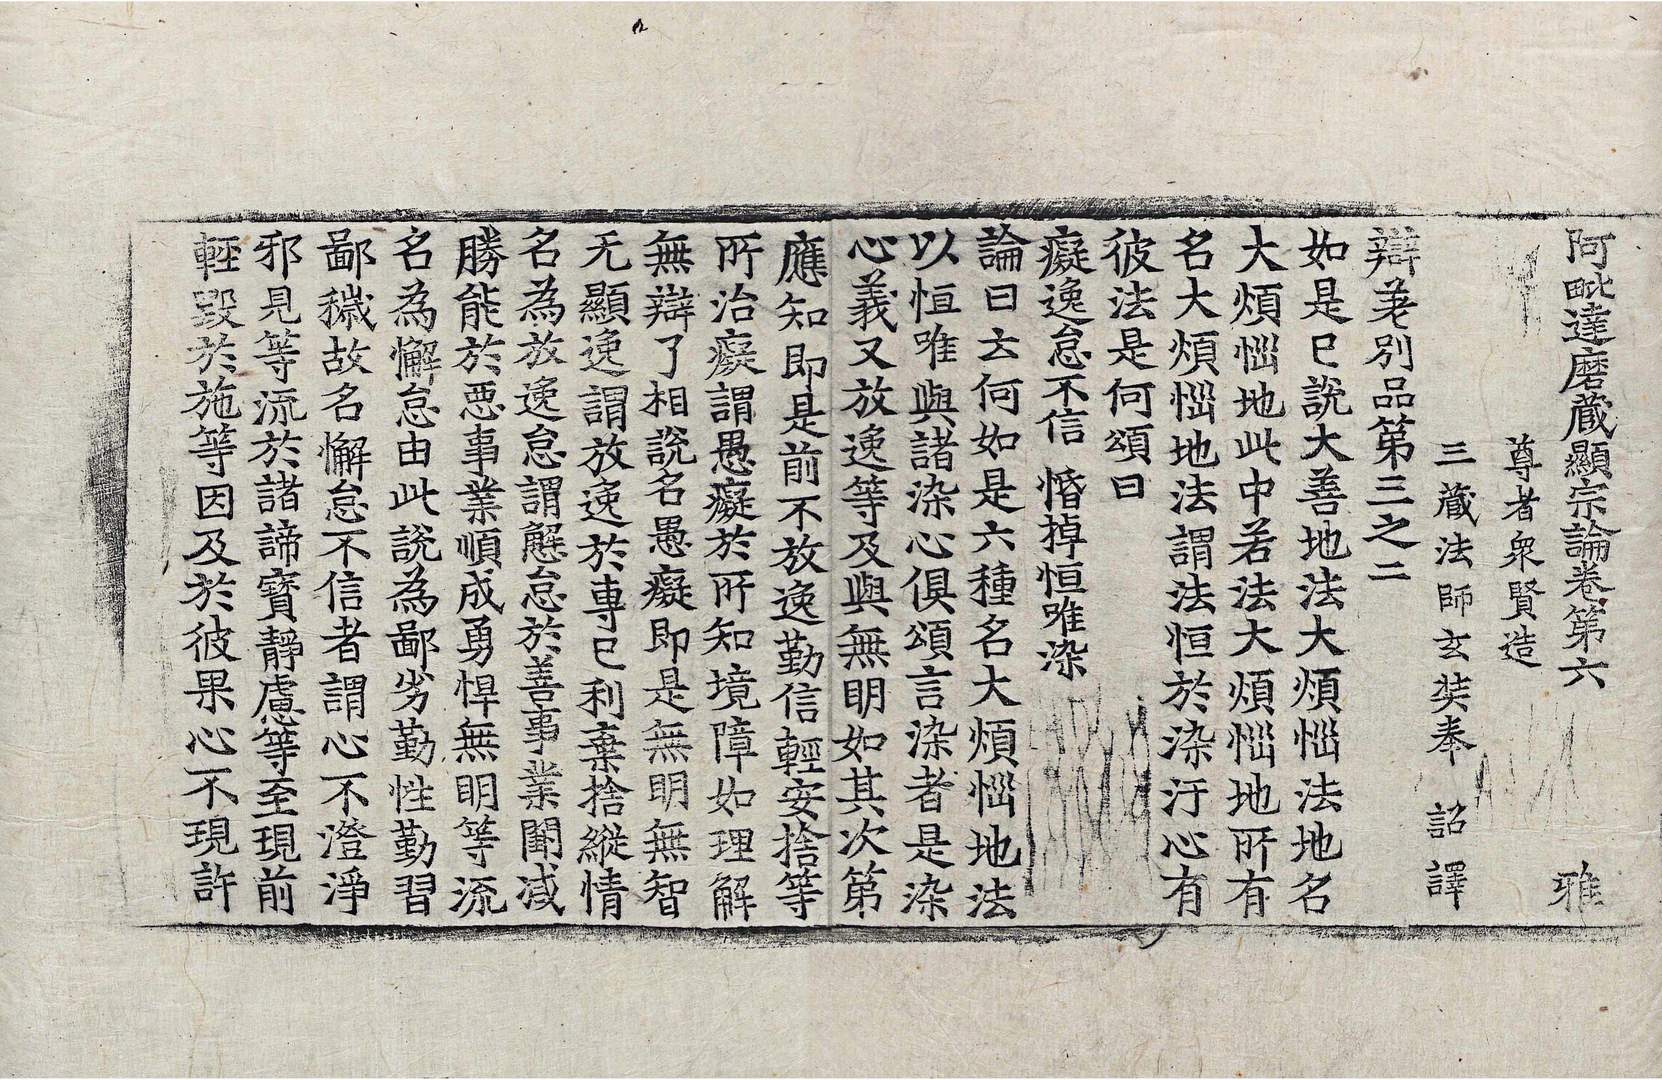 阿毗達磨藏顯宗論卷第六 雅
尊者衆賢造
三藏法師玄奘奉 詔譯
辯差別品第三之二
如是已說大善地法大煩惱法地名
大煩惱地此中若法大煩惱地所有
名大煩惱地法謂法恒於染汙心有
彼法是何頌曰
癡逸怠不信 惛掉恒唯染
論曰云何如是六種名大煩惱地法
以恒唯與諸染心俱頌言染者是染
心義又放逸等及與無明如其次第
應知即是前不放逸勤信輕安捨等
所治癡謂愚癡於所知境障如理解
無辯了相說名愚癡即是無明無智
无顯逸謂放逸於專已利棄捨縱情
名為放逸怠謂懈怠於善事業闕减
勝能於悪事業順成勇悍無明等流
名為懈怠由此說為鄙劣勤性勤習
鄙穢故名懈怠不信者謂心不澄淨
邪見等流於諸諦寳靜慮等至現前
輕毀於施等因及於彼果心不現許